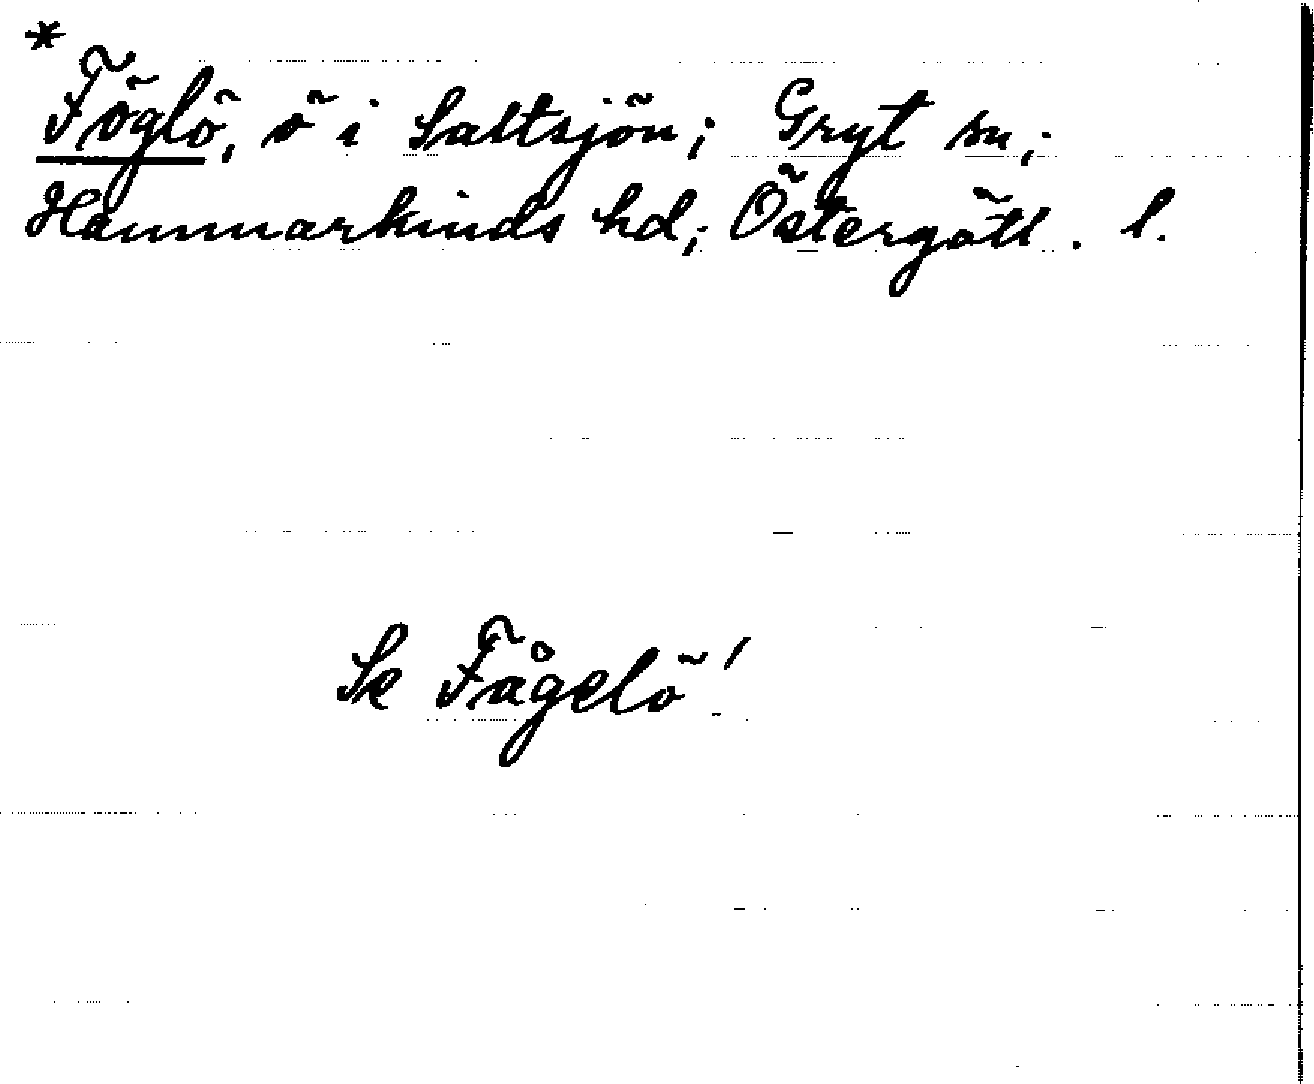 *
Föglö, ö i Saltsjön; Gryt sn;
Hammarkinds hd; Östergötl. l.
Se Fågelö!